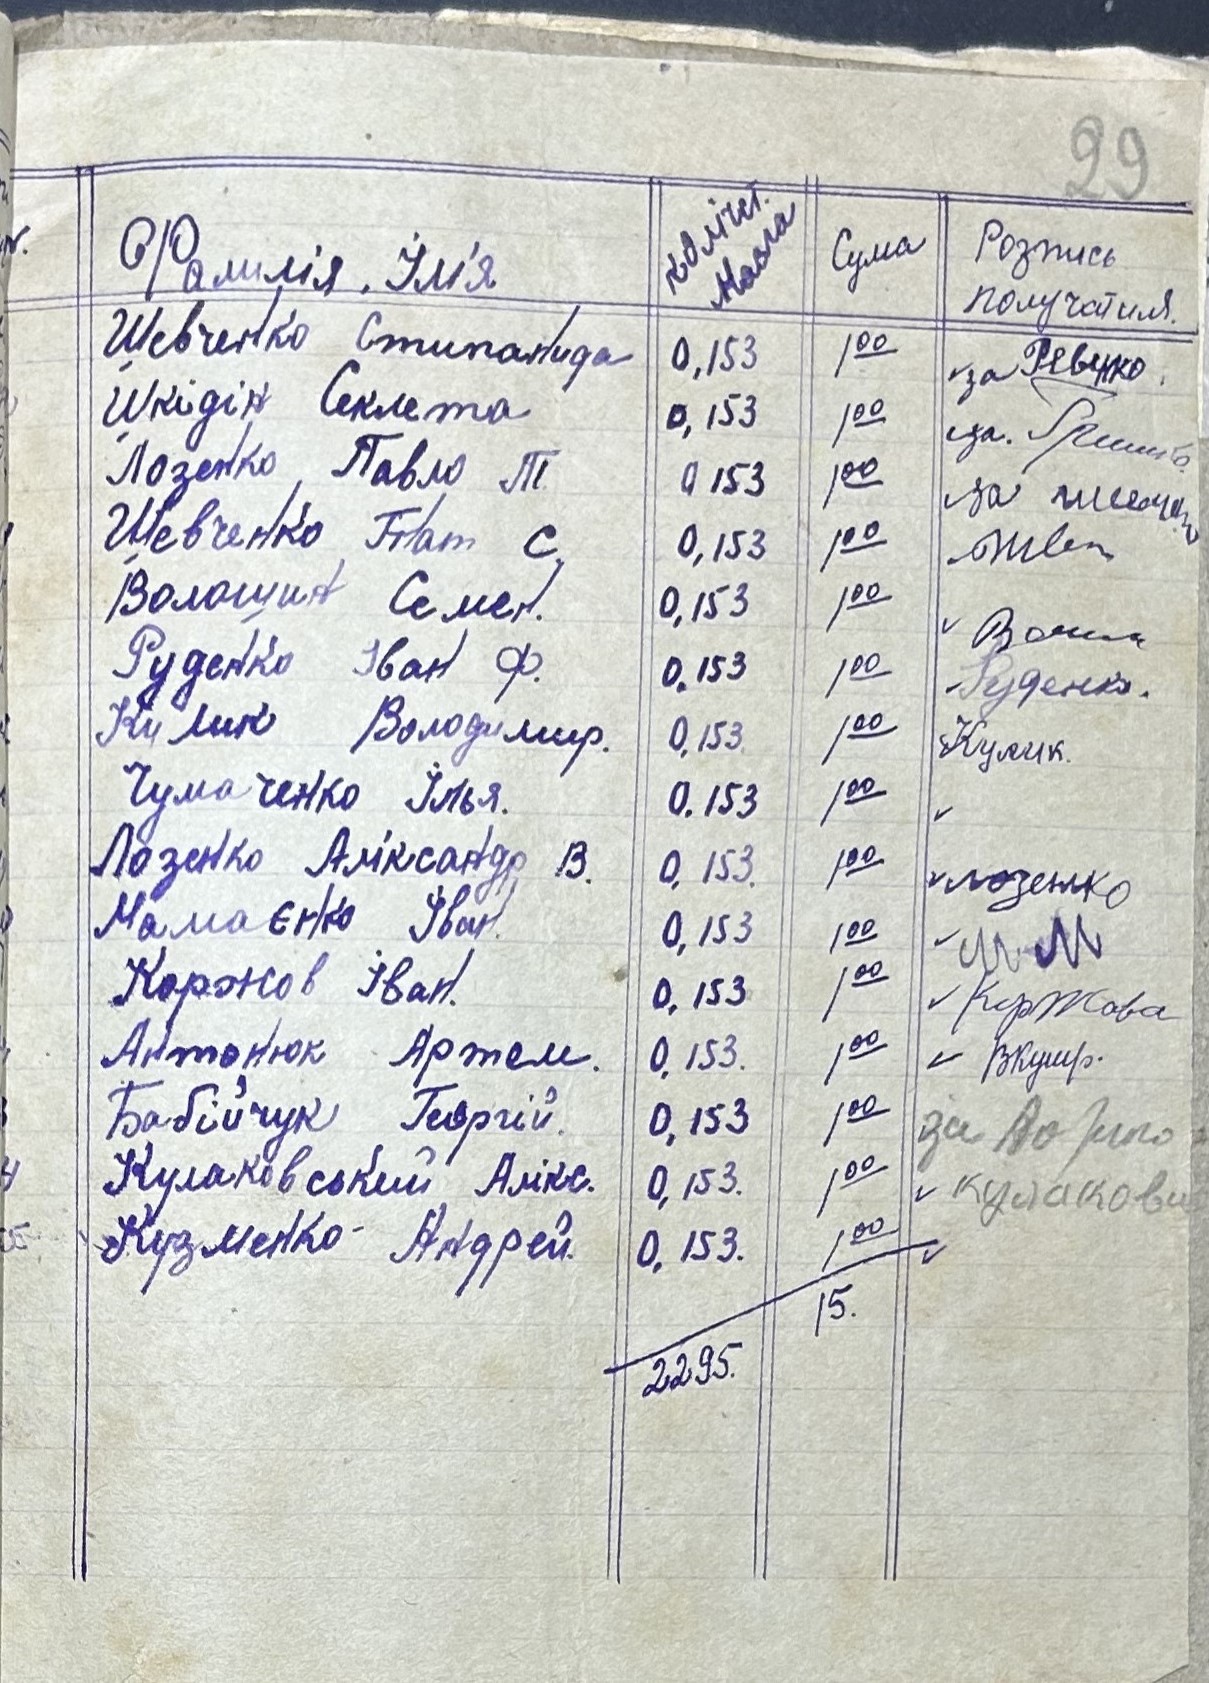 29
Фамилія, Їм'я Колічет. Масла Сума Розпись получатиля.
Шевченко Стипанида 0,153 1 00 за Ревенко
Шкідін Секлета 0,153 1 00 за.
Лозенко Павло Т 0 153 1 00 за
Шевченко Гнат С. 0,153 1 00
Волошин Семен. 0,153 1 00
Руденко Іван Ф. 0.153 1 00 Руденко.
Кулик Володимир. 0,153 1 00 Кулик.
Чумаченко Ілья. 0.153 1 00
Лозенко Аліксандр В. 0,153. 1 00 Лозенко
Мамаєнко Їван. 0,153 1 00
Коржов Їван. 0,153 1 00 Коржова
Антонюк Артем. 0,153. 1 00
Бабійчук Георгій. 0,153 1 00 за
Кулаковський Алікс. 0,153. 1 00 кулакови
Кузменко Андрей 0,153. 1 00
15.
2295.